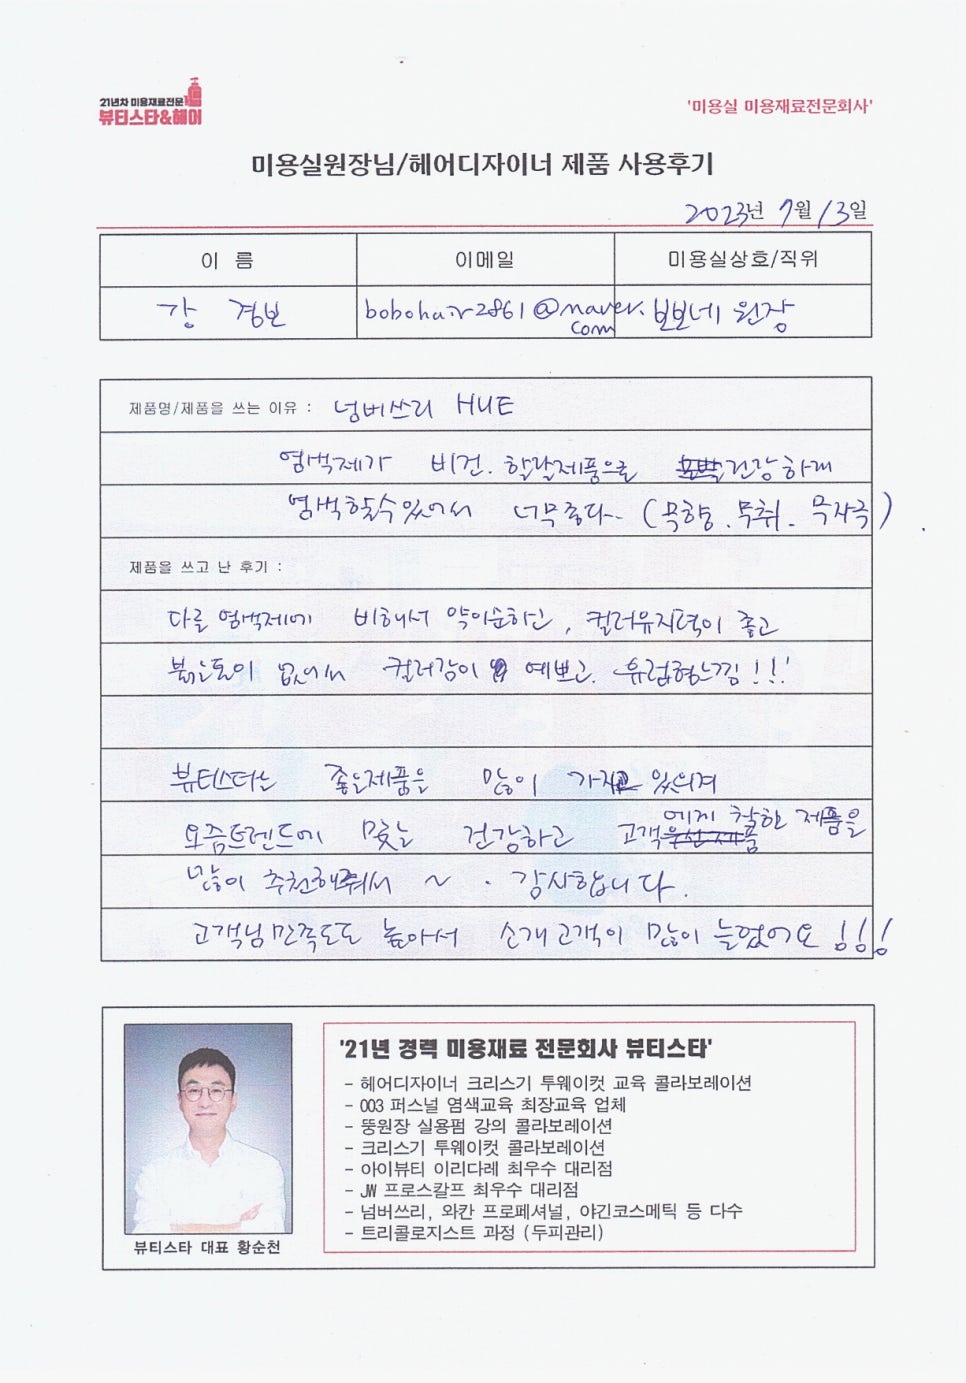 21년차 미용재료전문
뷰티스타&헤어
'미용실 미용재료전문회사'
미용실원장님/헤어디자이너 제품 사용후기
2023년 7월 13일
이 름
이메일
미용실상호/직위
강 경보
bobohair2861@naver.
com
보보네 원장
제품명/제품을 쓰는 이유 : 넘버쓰리 HUE
염색제가 비건. 할랄제품으로 건강하게
염색할수있어서 너무좋다. (무향. 무취. 무자극)
제품을 쓰고 난 후기 :
다른 염색제에 비해서 약이순하고, 컬러유지력이 좋고
붉은톤이 없어서 컬러감이 예쁘고. 유럽형느낌!!!
뷰티스타는 좋은제품을 많이 가지고 있으며
요즘트렌드에 맞는 건강하고 고객에게 착한 제품을
많이 추천해줘서 ~ . 감사합니다.
고객님만족도도 높아서 소개고객이 많이 늘었어요!!!
'21년 경력 미용재료 전문회사 뷰티스타'
- 헤어디자이너 크리스기 투웨이컷 교육 콜라보레이션
- 003 퍼스널 염색교육 최장교육 업체
- 뚱원장 실용펌 강의 콜라보레이션
- 크리스기 투웨이컷 콜라보레이션
- 아이뷰티 이리다레 최우수 대리점
- JW 프로스칼프 최우수 대리점
- 넘버쓰리, 와칸 프로페셔널, 야긴코스메틱 등 다수
- 트리콜로지스트 과정 (두피관리)
뷰티스타 대표 황순천